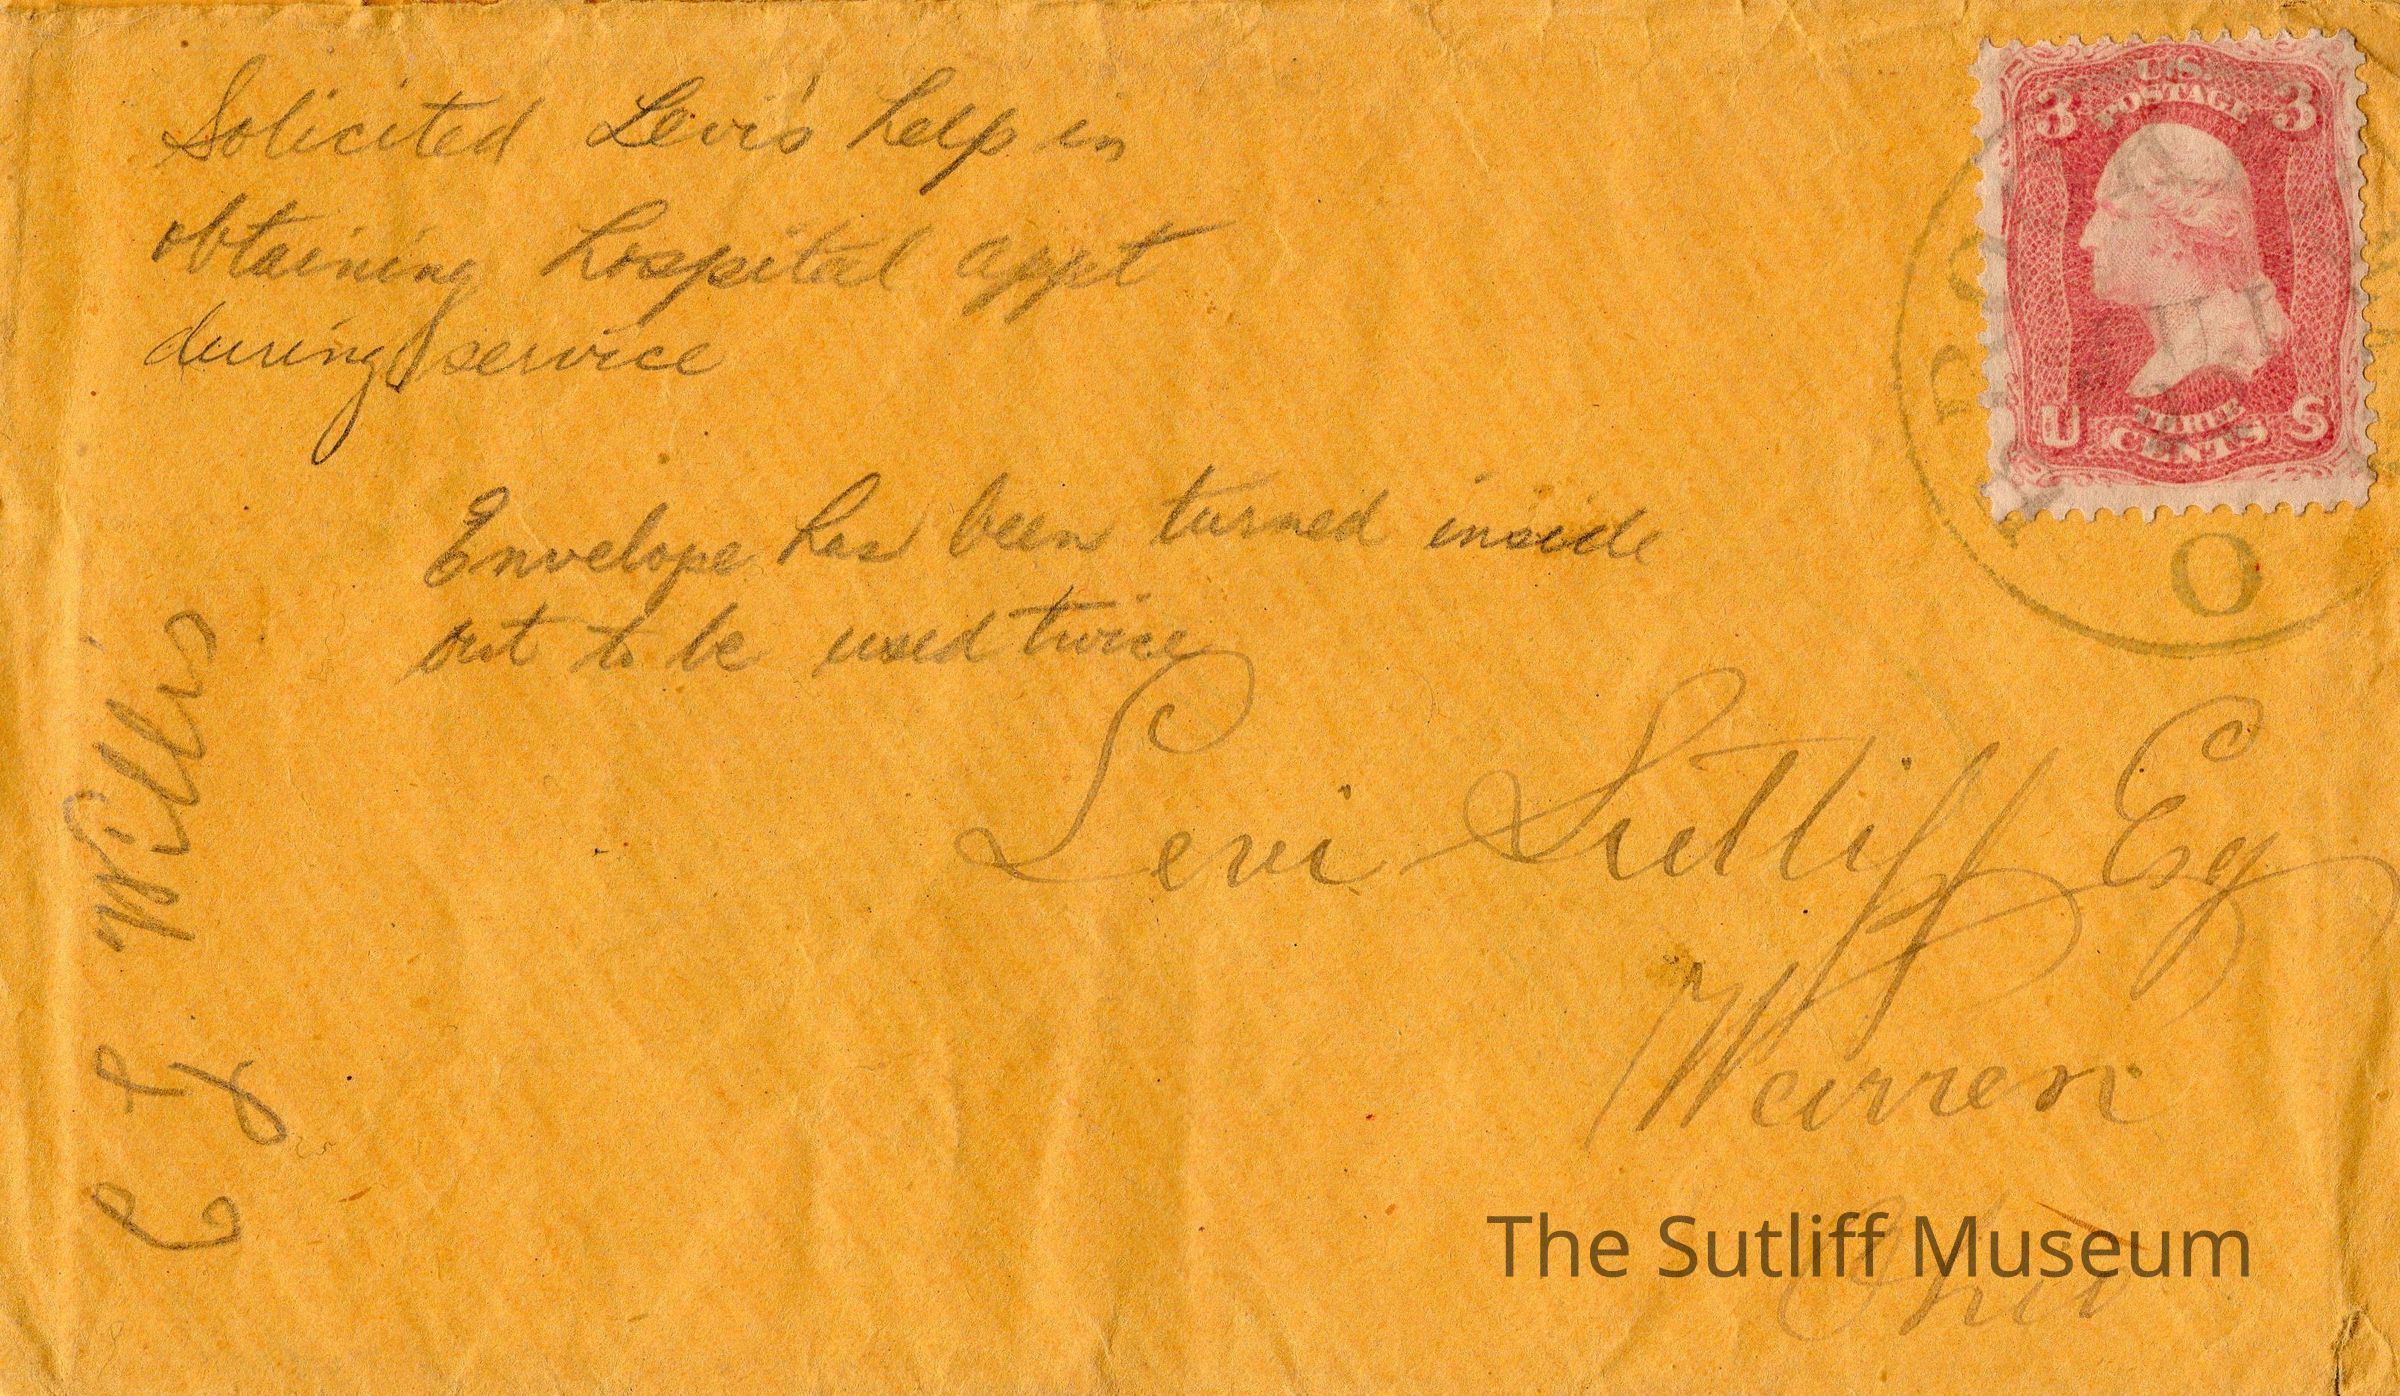 Solicited Levi's help in
obtaining hospital appt
during service
Envelope has been turned inside
out to be used twice
U.S.
POSTAGE
3 3
U S
THREE
CENTS
O
Levi Sutliff Esq
Warren
Ohio
Willis
The Sutliff Museum